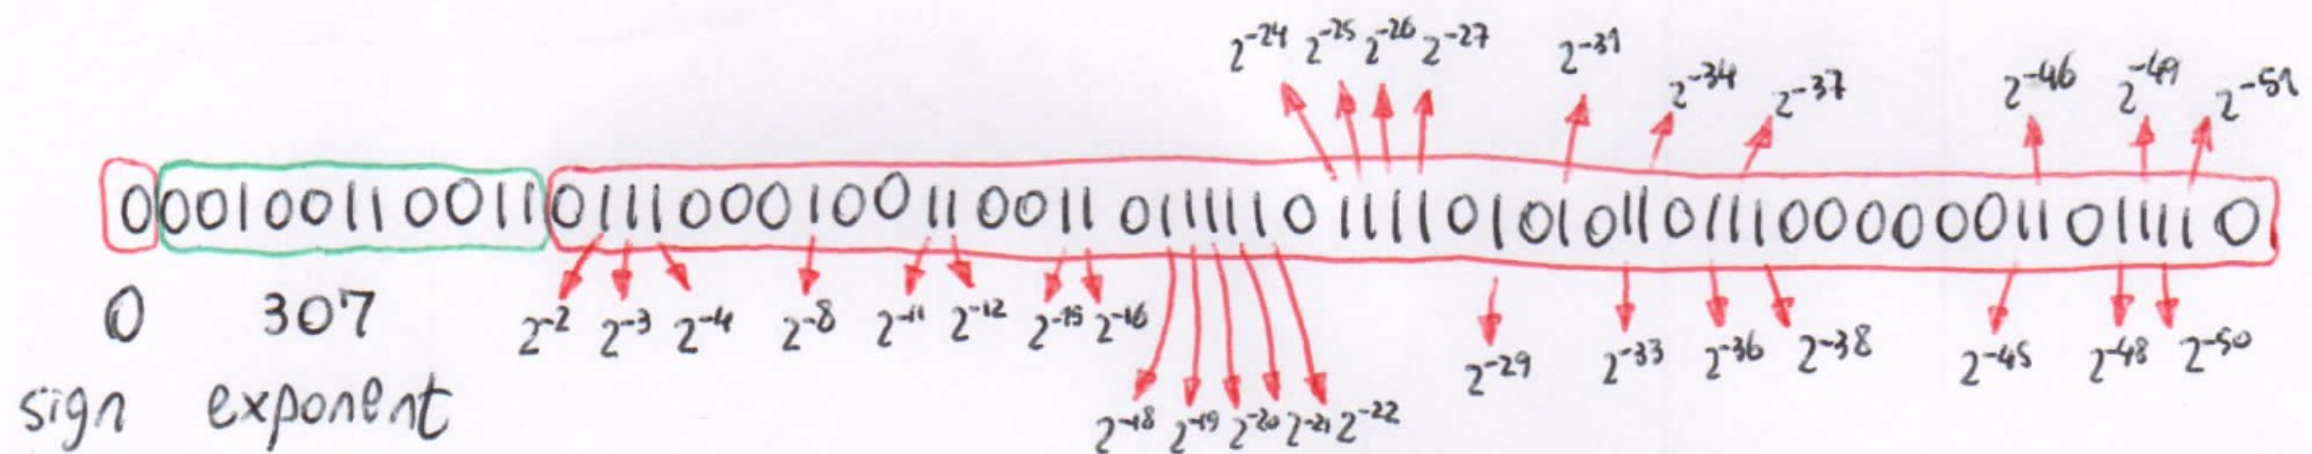 2⁻²⁴ 2⁻²⁵ 2⁻²⁶ 2⁻²⁷ 2⁻³¹ 2⁻³⁴ 2⁻³⁷ 2⁻⁴⁶ 2⁻⁴⁹ 2⁻⁵¹
0 00100110011 0111000100110011011111011110101011011100000011011110
0 307 2⁻² 2⁻³ 2⁻⁴ 2⁻⁸ 2⁻¹¹ 2⁻¹² 2⁻¹⁵ 2⁻¹⁶ 2⁻²⁹ 2⁻³³ 2⁻³⁶ 2⁻³⁸ 2⁻⁴⁵ 2⁻⁴⁸ 2⁻⁵⁰
sign exponent 2⁻¹⁸ 2⁻¹⁹ 2⁻²⁰ 2⁻²¹ 2⁻²²